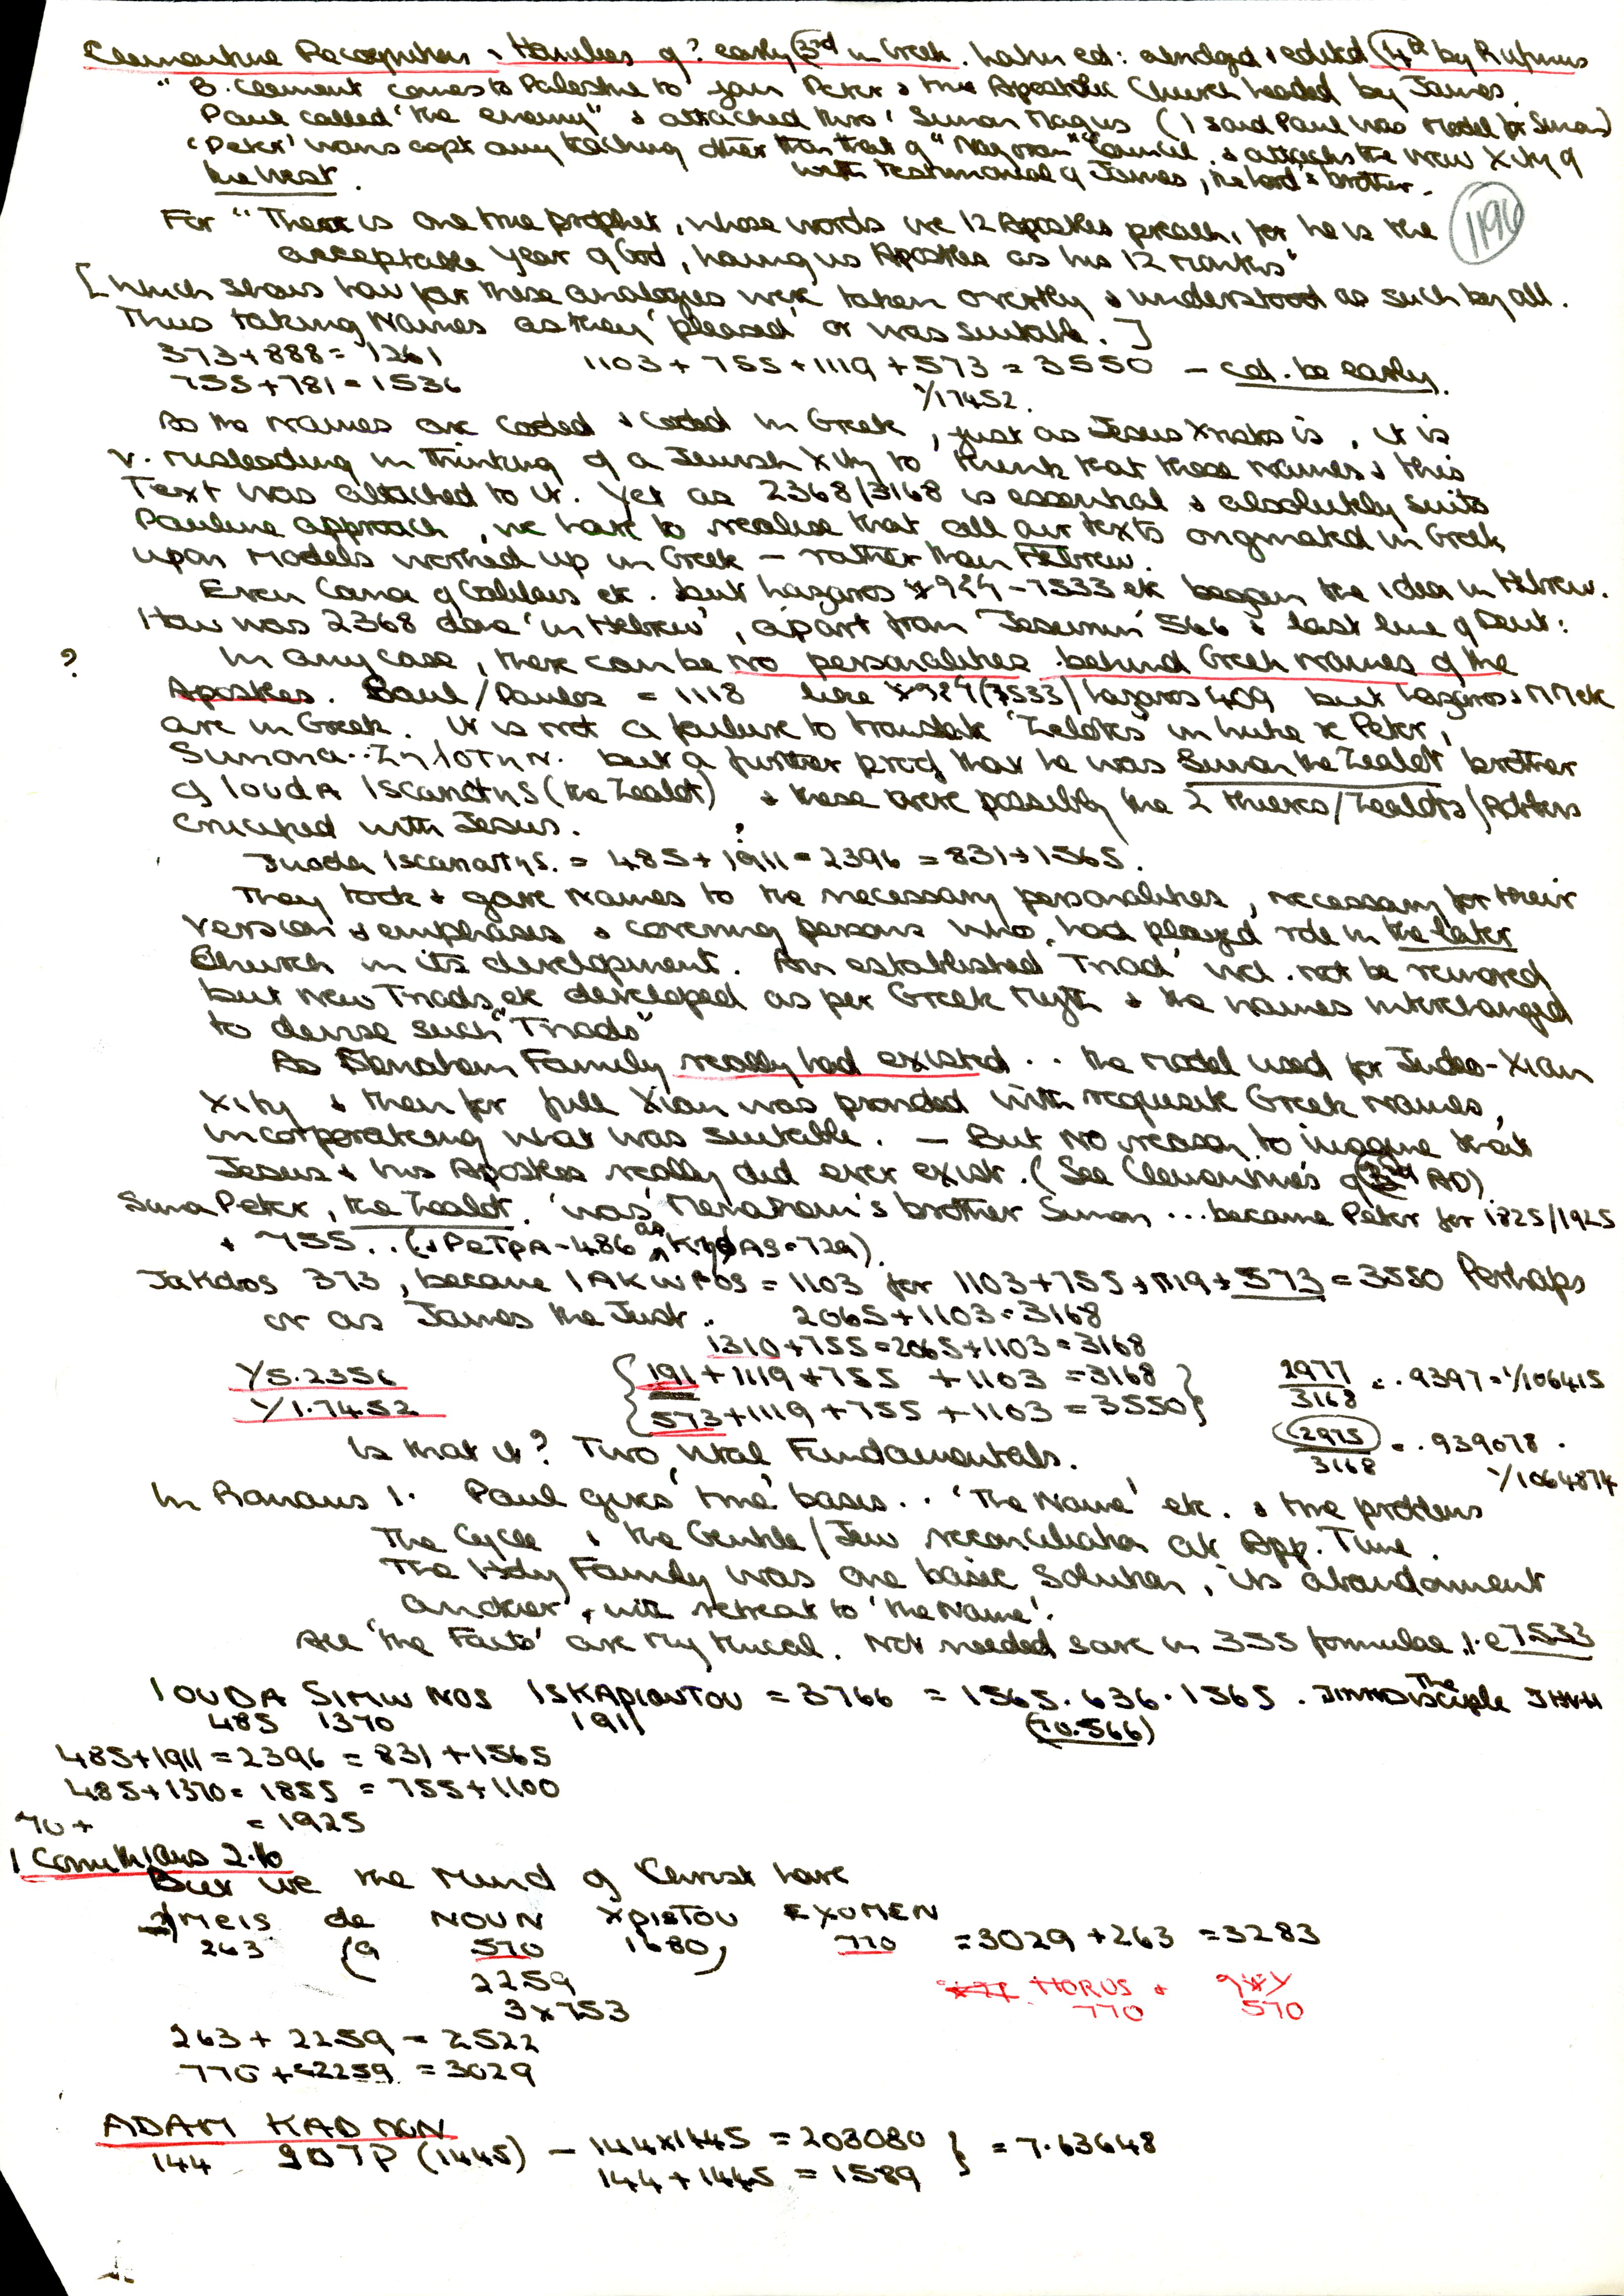 Clementine Recognitions & Homilies of? early 3rd in Greek. Latin ed: abridged & edited 4th by Rufinus
" B. Clement comes to Palestine to join Peter & the Apostolic Church headed by James.
Paul called 'the enemy" & attacked thro' Simon Magus (I said Paul was model for Simon)
'Peter' warns any teaching other than that of & attacks the new Xity of
the West. with testimonial of James, the Lord's brother.
1196
For "There is one true prophet, whose words we 12 Apostles preach, for he is the
acceptable year of God, having us Apostles as his 12 months"
[which shows how far these analogies were taken overtly & understood as such by all.
Thus taking Names as they 'pleased' or was suitable.]
373+888 = 1261 1103 + 755 + 1119 + 573 = 3550 - cd. be early.
755+781 = 1536 1/17452.
As the Names are coded & coded in Greek, just as Jesus Xristos is, it is
v. misleading in thinking of a Jewish Xity to think that these names & this
Text was attached to it. Yet as 2368/3168 is essential & absolutely suits
Pauline approach, we have to realise that all our texts originated in Greek
upon models worked up in Greek - rather than Hebrew.
Even Cana of Galilee etc. but Lazaros - 7533 etc began the idea in Hebrew.
How was 2368 done 'in Hebrew', apart from 'Jesurun' 566 & last line of Deut:
? In any case, there can be no personalities behind Greek names of the
Apostles. Saul/Paulos = 1118 like (7533) Lazaros 409 but Lazaros & MM etc
are in Greek. It is not a failure to translate 'Zelotes' in Luke re Peter,
Simona..Zηlotηn. but a further proof that he was Simon the Zealot brother
of IoudA Iscariotηs (the Zealot) & these were possibly the 2 thieves/Zealots/
crucified with Jesus.
Iuoda Iscariotηs. = 485 + 1911 = 2396 = 831 + 1565.
They took & gave names to the necessary personalities, necessary for their
version & emphases & covering persons who had played role in the later
Church in its development. An established 'Triad' wd. not be removed
but new Triads etc developed as per Greek Myth & the names interchanged
to devise such "Triads"
As Family really had existed .. the model used for Judeo-Xian
Xity & then for full Xian was provided with requisite Greek names,
incorporating what was suitable. - But no reason to imagine that
Jesus & his Apostles really did ever exist. (See Clementines of 3rd AD)
Simon Peter, the Zealot. 'was' Menahem's brother Simon ... became Peter for 1825/1925
+ 755.. (& PeTpA - 486 as KηφAS = 729).
Jakobos 373, became IAKWBOS = 1103 for 1103+755+1119+573 = 3550 Perhaps
or as James the Just.. 2065+1103 = 3168
1310+755 = 2065+1103 = 3168
1/5.2356 {191 + 1119 + 755 + 1103 = 3168} 2977/3168 = .9397 = 1/106415
1/1.7452 {573 + 1119 + 755 + 1103 = 3550} 2975/3168 = .939078.
Is that it? Two Vital Fundamentals. 1/1064874
In Romans 1. Paul gives 'true' bases.. 'The Name' etc. & the problems
The Cycle & the Gentile/Jew reconciliation at App. Time.
The Holy Family was one basic solution, its abandonment
another, with retreat to 'the Name'.
All 'the Facts' are mythical. Not needed save in 355 formulae, i.e 7533
IOUDA SIMWNOS ISKApIOWTOU = 3766 = 1565.636.1565. The Disciple JHVH
485 1370 1911 (10.566)
485+1911 = 2396 = 831 + 1565
485+1370 = 1855 = 755+1100
70 + = 1925
1 Corinthians 2.16
But we the Mind of Christ have
ηMeis de NOUN XpisTOU EXOMEN
263 (9 570 1680) 770 = 3029 + 263 = 3283
2259 HORUS +
3 x 753 770 570
263 + 2259 = 2522
770 + 2259 = 3029
ADAM KADMON
144 (1445) - 144x1445 = 203080 } = 7.63648
144 + 1445 = 1589